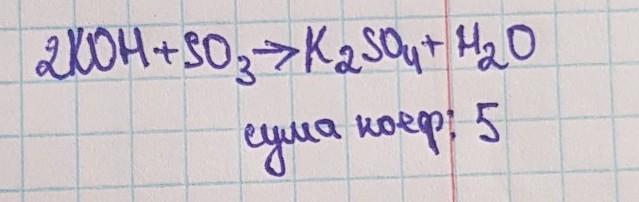 2KOH+SO3→K2SO4+H2O
сума коеф: 5